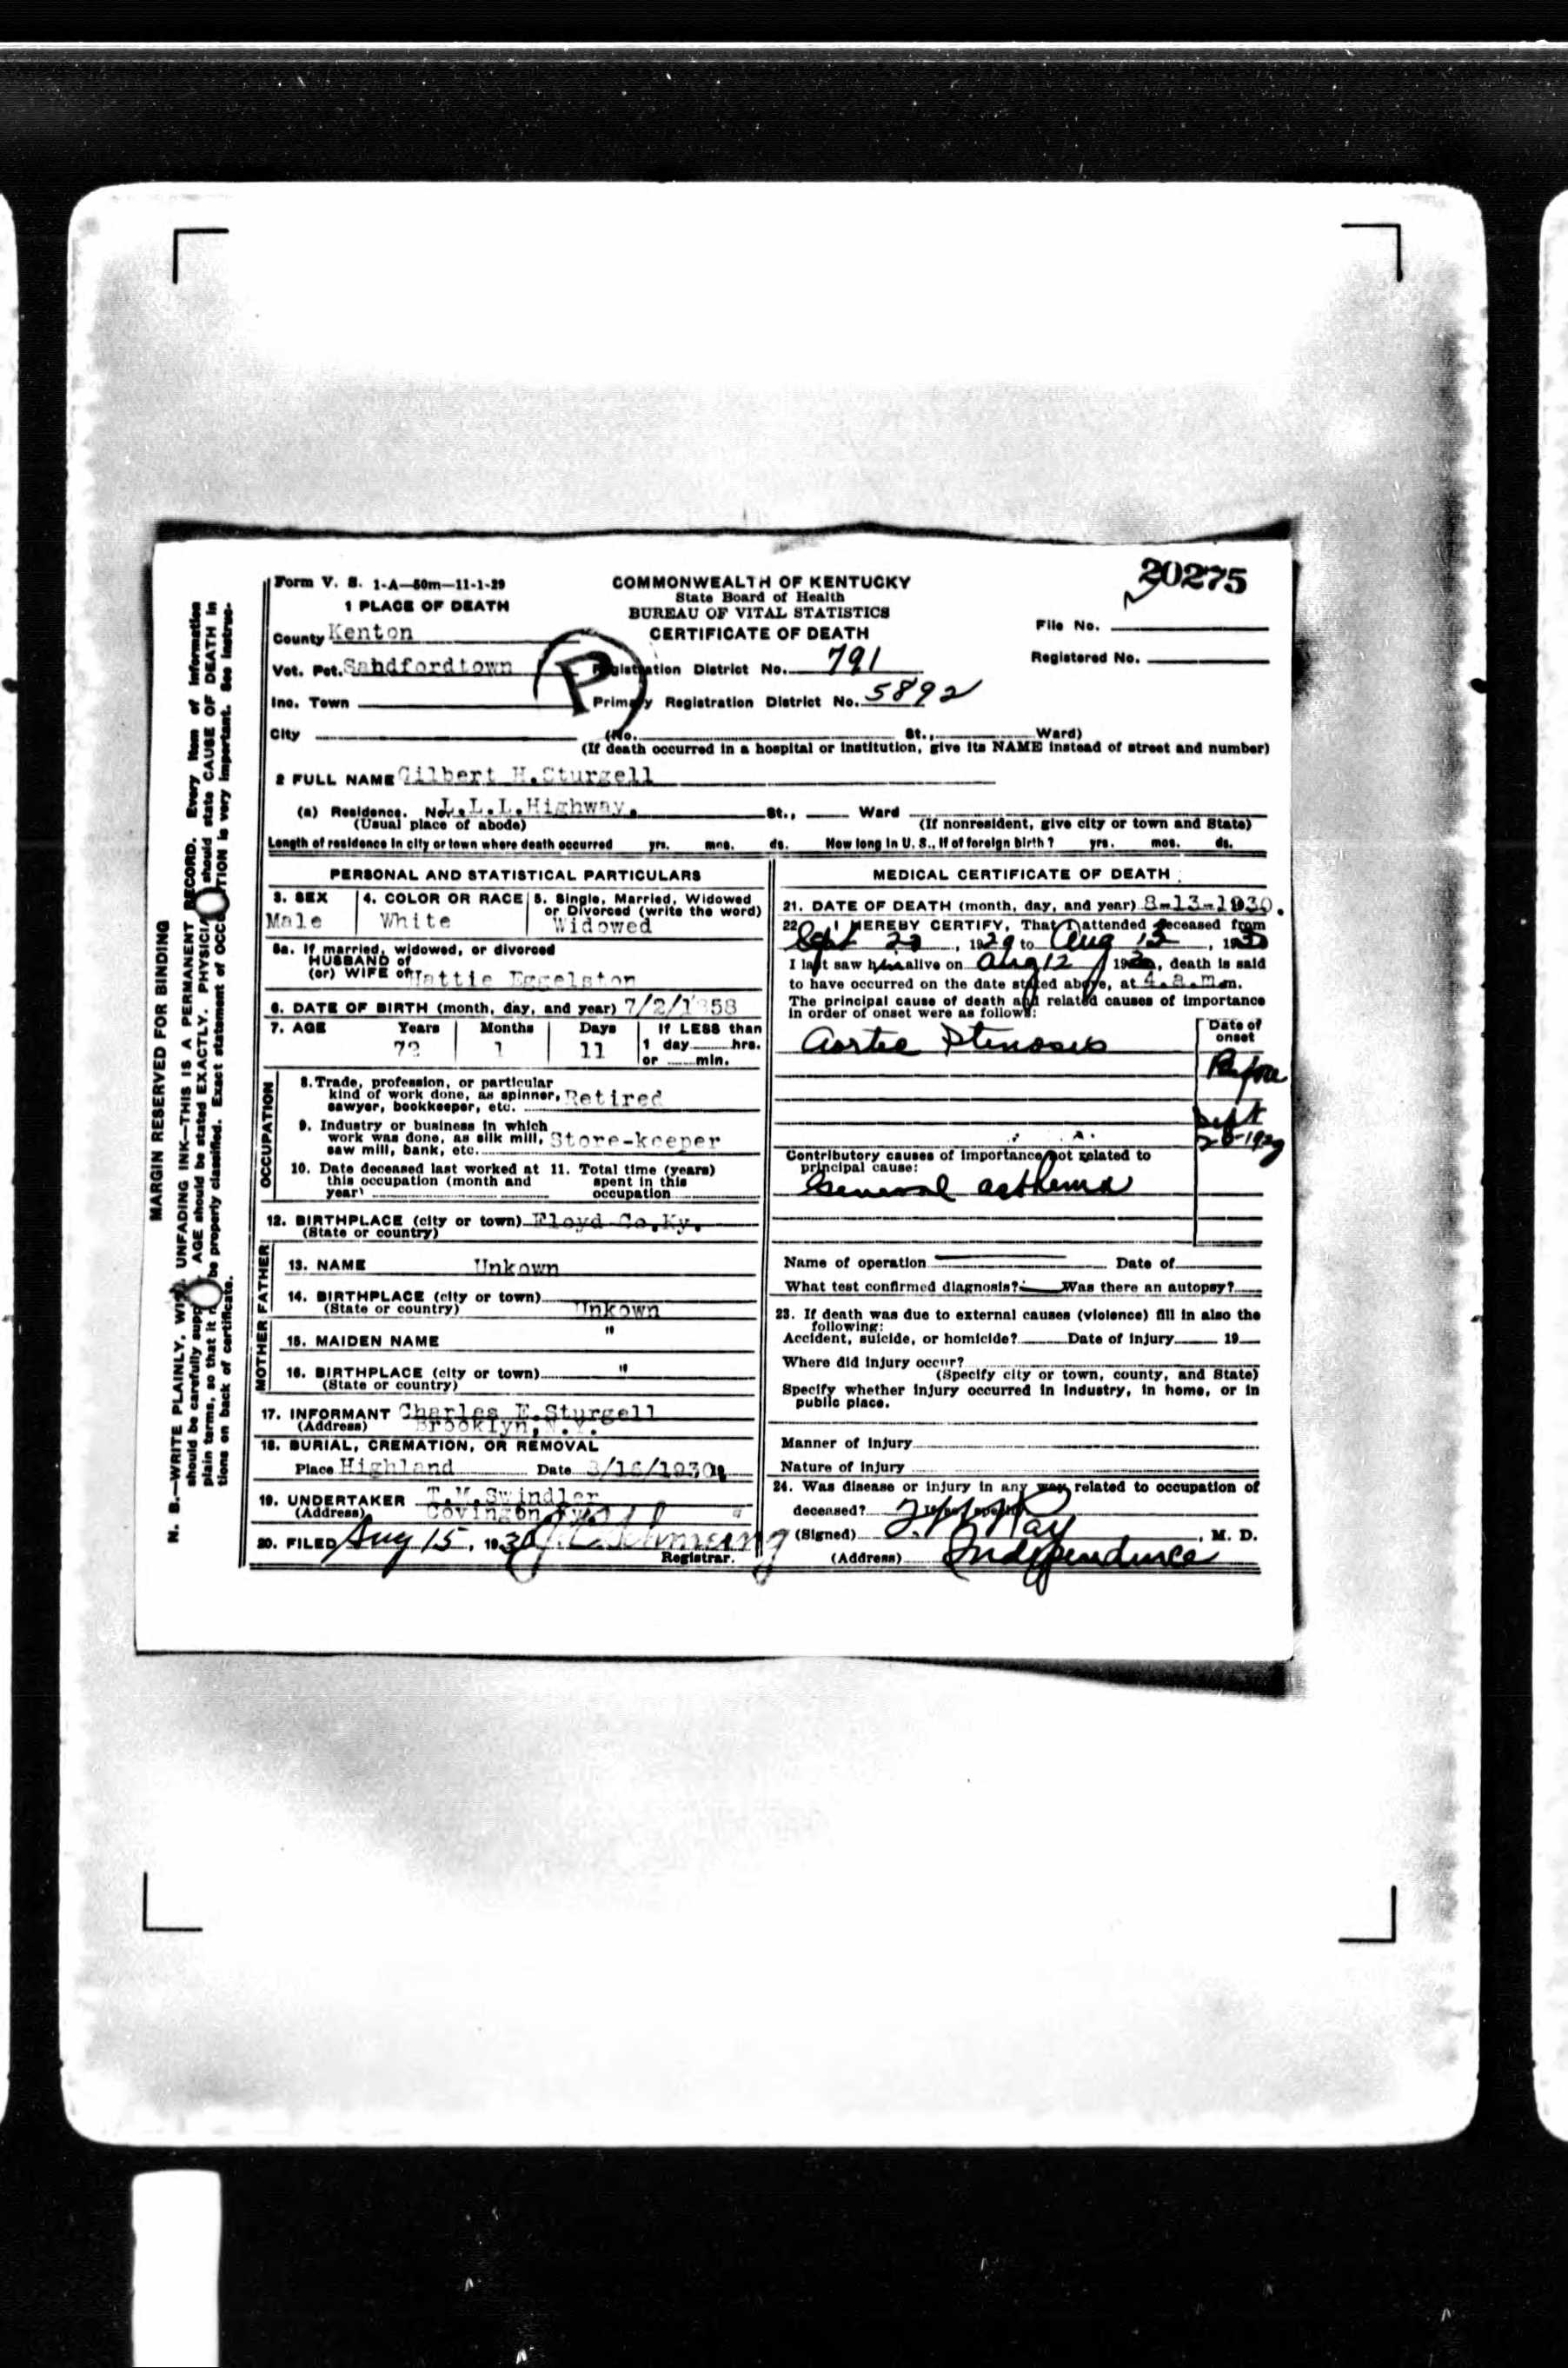 20275
Form V. S. 1-A—50m—11-1-29
COMMONWEALTH OF KENTUCKY
State Board of Health
BUREAU OF VITAL STATISTICS
CERTIFICATE OF DEATH
1 PLACE OF DEATH
County Kenton
File No.
Vot. Pct. Sahdfordtown
P
Registration District No. 791
Registered No.
Inc. Town
Primary Registration District No. 5892
City (No. St., Ward)
(If death occurred in a hospital or institution, give its NAME instead of street and number)
2 FULL NAME Gilbert H.Sturgell
(a) Residence. No. L.L.L.Highway. St., Ward
(Usual place of abode) (If nonresident, give city or town and State)
Length of residence in city or town where death occurred yrs. mos. ds. How long in U. S., if of foreign birth? yrs. mos. ds.
PERSONAL AND STATISTICAL PARTICULARS
3. SEX
Male
4. COLOR OR RACE
White
5. Single, Married, Widowed
or Divorced (write the word)
Widowed
5a. If married, widowed, or divorced
HUSBAND of
(or) WIFE of Hattie Eggelston
6. DATE OF BIRTH (month, day, and year) 7/2/1858
7. AGE Years Months Days If LESS than
72 1 11 1 day hrs.
or min.
OCCUPATION
8. Trade, profession, or particular
kind of work done, as spinner,
sawyer, bookkeeper, etc. Retired
9. Industry or business in which
work was done, as silk mill,
saw mill, bank, etc. Store-keeper
10. Date deceased last worked at
this occupation (month and
year)
11. Total time (years)
spent in this
occupation
12. BIRTHPLACE (city or town) Floyd Co.Ky.
(State or country)
FATHER
13. NAME Unkown
14. BIRTHPLACE (city or town)
(State or country) Unkown
MOTHER
15. MAIDEN NAME "
16. BIRTHPLACE (city or town) "
(State or country)
17. INFORMANT Charles E.Sturgell
(Address) Brooklyn,N.Y.
18. BURIAL, CREMATION, OR REMOVAL
Place Highland Date 8/16/1930
19. UNDERTAKER T.M.Swindler
(Address) Covington Ky.
20. FILED Aug 15, 1930
Registrar.
MEDICAL CERTIFICATE OF DEATH
21. DATE OF DEATH (month, day, and year) 8-13-1930.
22. I HEREBY CERTIFY, That I attended deceased from
Sept 1929 to Aug 13, 1930
I last saw him alive on Aug 12 1930, death is said
to have occurred on the date stated above, at 4.a.m.m.
The principal cause of death and related causes of importance
in order of onset were as follows:
Date of
onset
Aortic Stenosis
Before
Sept
1929
Contributory causes of importance not related to
principal cause:
General asthema
Name of operation Date of
What test confirmed diagnosis? Was there an autopsy?
23. If death was due to external causes (violence) fill in also the
following:
Accident, suicide, or homicide? Date of injury 19
Where did injury occur?
(Specify city or town, county, and State)
Specify whether injury occurred in industry, in home, or in
public place.
Manner of injury
Nature of injury
24. Was disease or injury in any way related to occupation of
deceased? If so, specify
(Signed) Ray, M. D.
(Address) Independence
MARGIN RESERVED FOR BINDING
N. B.—WRITE PLAINLY, WITH UNFADING INK—THIS IS A PERMANENT RECORD. Every item of information
should be carefully supp AGE should be stated EXACTLY. PHYSICIA should state CAUSE OF DEATH in
plain terms, so that it be properly classified. Exact statement of OCC TION is very important. See instruc-
tions on back of certificate.